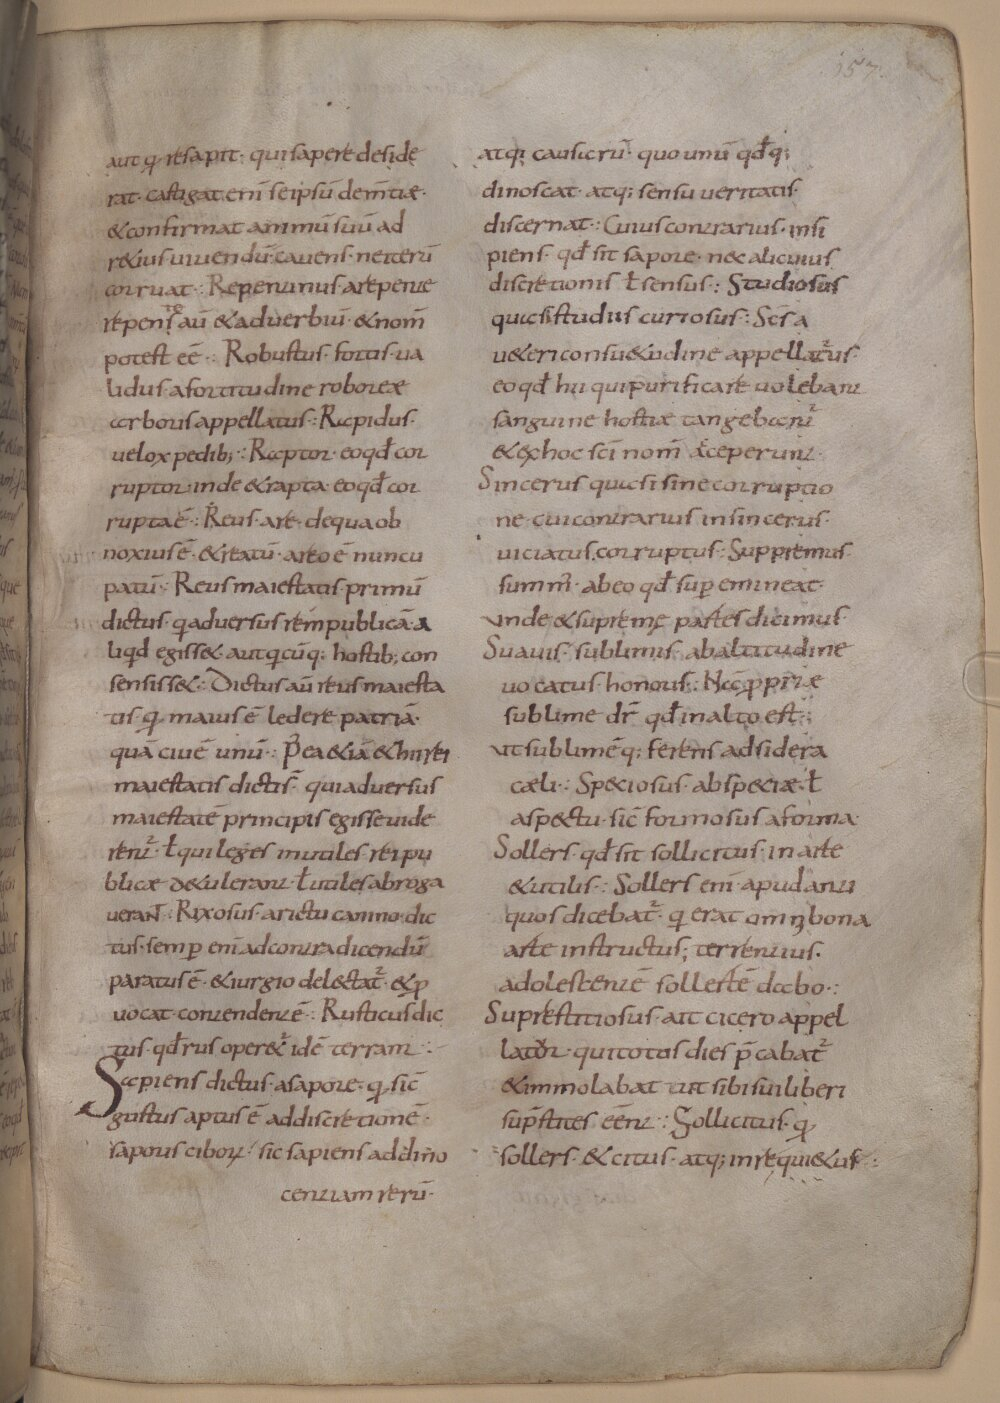 157.
aut q̃ resapit· qui sapere deside
rat· castigat enī seipsū dem̄tiæ·
&confirmat animū suū ad
r&ius uiuendū· cauens ne iterū
corruat· Repentinus a repente
repens aū &aduerbiū &nom̄
potest eē·: Robustus· fortis· ua
lidus a fortitudine roboreæ
arboris appellatus·: Rapidus·
uelox pedib;·: Raptor· eo qđ cor
ruptor· inde &rapta eo qđ cor
rupta ē·: Reus· a re· de qua ob
noxius ē· &reatū· a reo ē nuncu
patū· Reus maiestatis· primū
dictus· q̃ aduersus rempublicā· a
liqđ egiss&· aut q̃cūq; hostib; con
sensiss&·: Dictus aū reus maiesta
tis q̃· maius ē ledere patriā·
quā ciuē unū·: P̄ea &iā &hii rei
maiestatis dicti s̄· qui aduersus
maiestatē principis egisse uide
rent̃· ł qui leges inutiles reipu
blicæ d&ulerant· ł utiles abroga
uerant·: Rixosus· a rictu canino· dic
tus· semp̱ enī ad contradicendū
paratus ē· &iurgio delectat̃· &p̱
uocat contendentē·: Rusticus dic
tus· qđ rus oper&̃ idē terram·:
Sapiens dictus a sapore· q̃ sic̄
gustus aptus ē ad discretionē·
saporis ciboꝝ· sic sapiens ad dino
centiam rerū·
atq; causarū· quo unū qđq;
dinoscat· atq; sensu ueritatis
discernat·: Cuius contrarius· insi
piens· qđ sit sapore· nec alicuius
discretionis ł sensus·: Studiosus
quasi studiis curiosus·: Sc̄s a
u&eri consu&udine appellat̃us·
eo qđ hii qui purificare uolebant
sanguine hostiæ tangebant̃
&exhoc sc̄i nom̄ acceperunt·
Sincerus quasi sine corruptio
ne· cui contrarius insincerus·
uiciatus, corruptus·: Suppremus
summ̃· ab eo qđ sup̱emineat·
unde &supreme partes dicimus·
Suauis· sublimis· ab altitudine
uocatus· honoris·: Nā p̱p̱riæ
sublime dr̄ qđ in alto est·:
ut sublimēq; ferens ad sidera
cæli·: Speciosus· ab speciæ· ł
aspectu· sic̄ formosus a forma·
Sollers· qđ sit sollicitus in arte
&utilis·: Sollers enī apud anti
quos dicebat̃· q̃ erat omi bona
arte instructus; terrentius·
adolescentē sollertē dabo·:
Suprestitiosus· ait cicero appel
lator· qui totos dies p̄cabat̃
&immolabat ut sibi sui liberi
sup̄stites eēnt·: Sollicitus· q̃
sollers· &citus· atq; inrequi&us·: